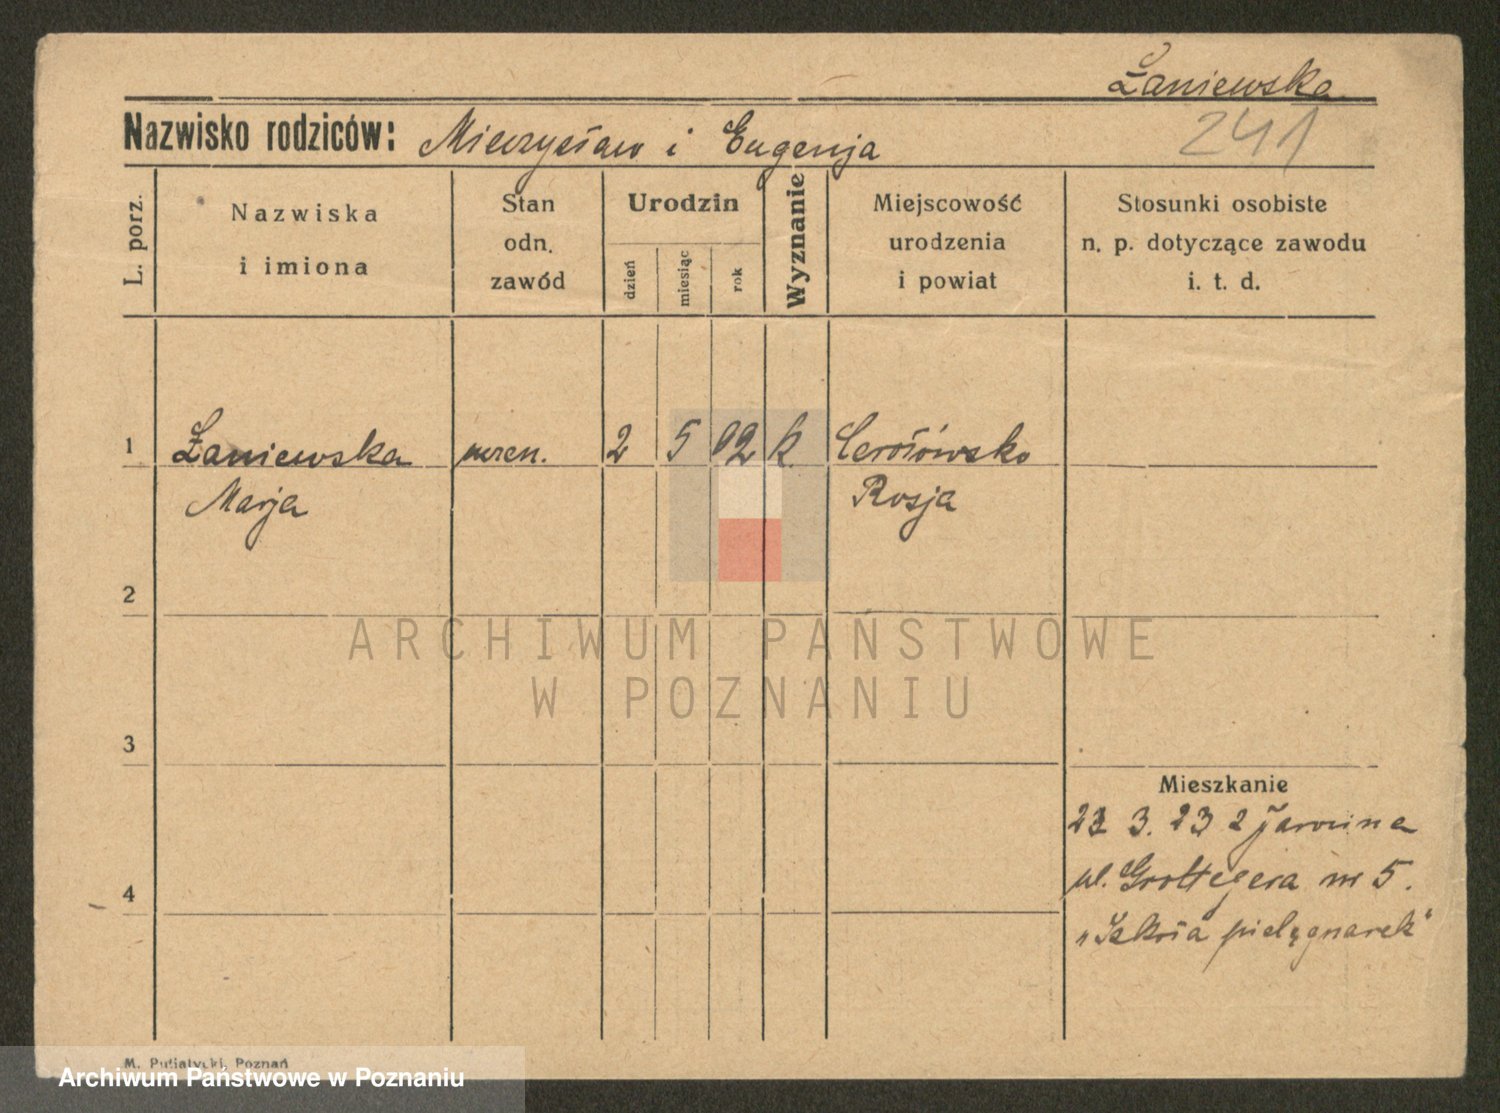 Łaniewska
241
Nazwisko rodziców: Mieczysław i Eugenja
L. porz.
Nazwiska
i imiona
Stan
odn.
zawód
Urodzin
dzień
miesiąc
rok
Wyznanie
Miejscowość
urodzenia
i powiat
Stosunki osobiste
n. p. dotyczące zawodu
i. t. d.
1 Łaniewska 2 5 02 k.
Marja Rosja
2
3
4
Mieszkanie
3. 23 z Jarocina
ul. Grottgera nr 5.
„Szkoła pielęgnarek"
ARCHIWUM PAŃSTWOWE
W POZNANIU
M. Putiatycki, Poznań
Archiwum Państwowe w Poznaniu